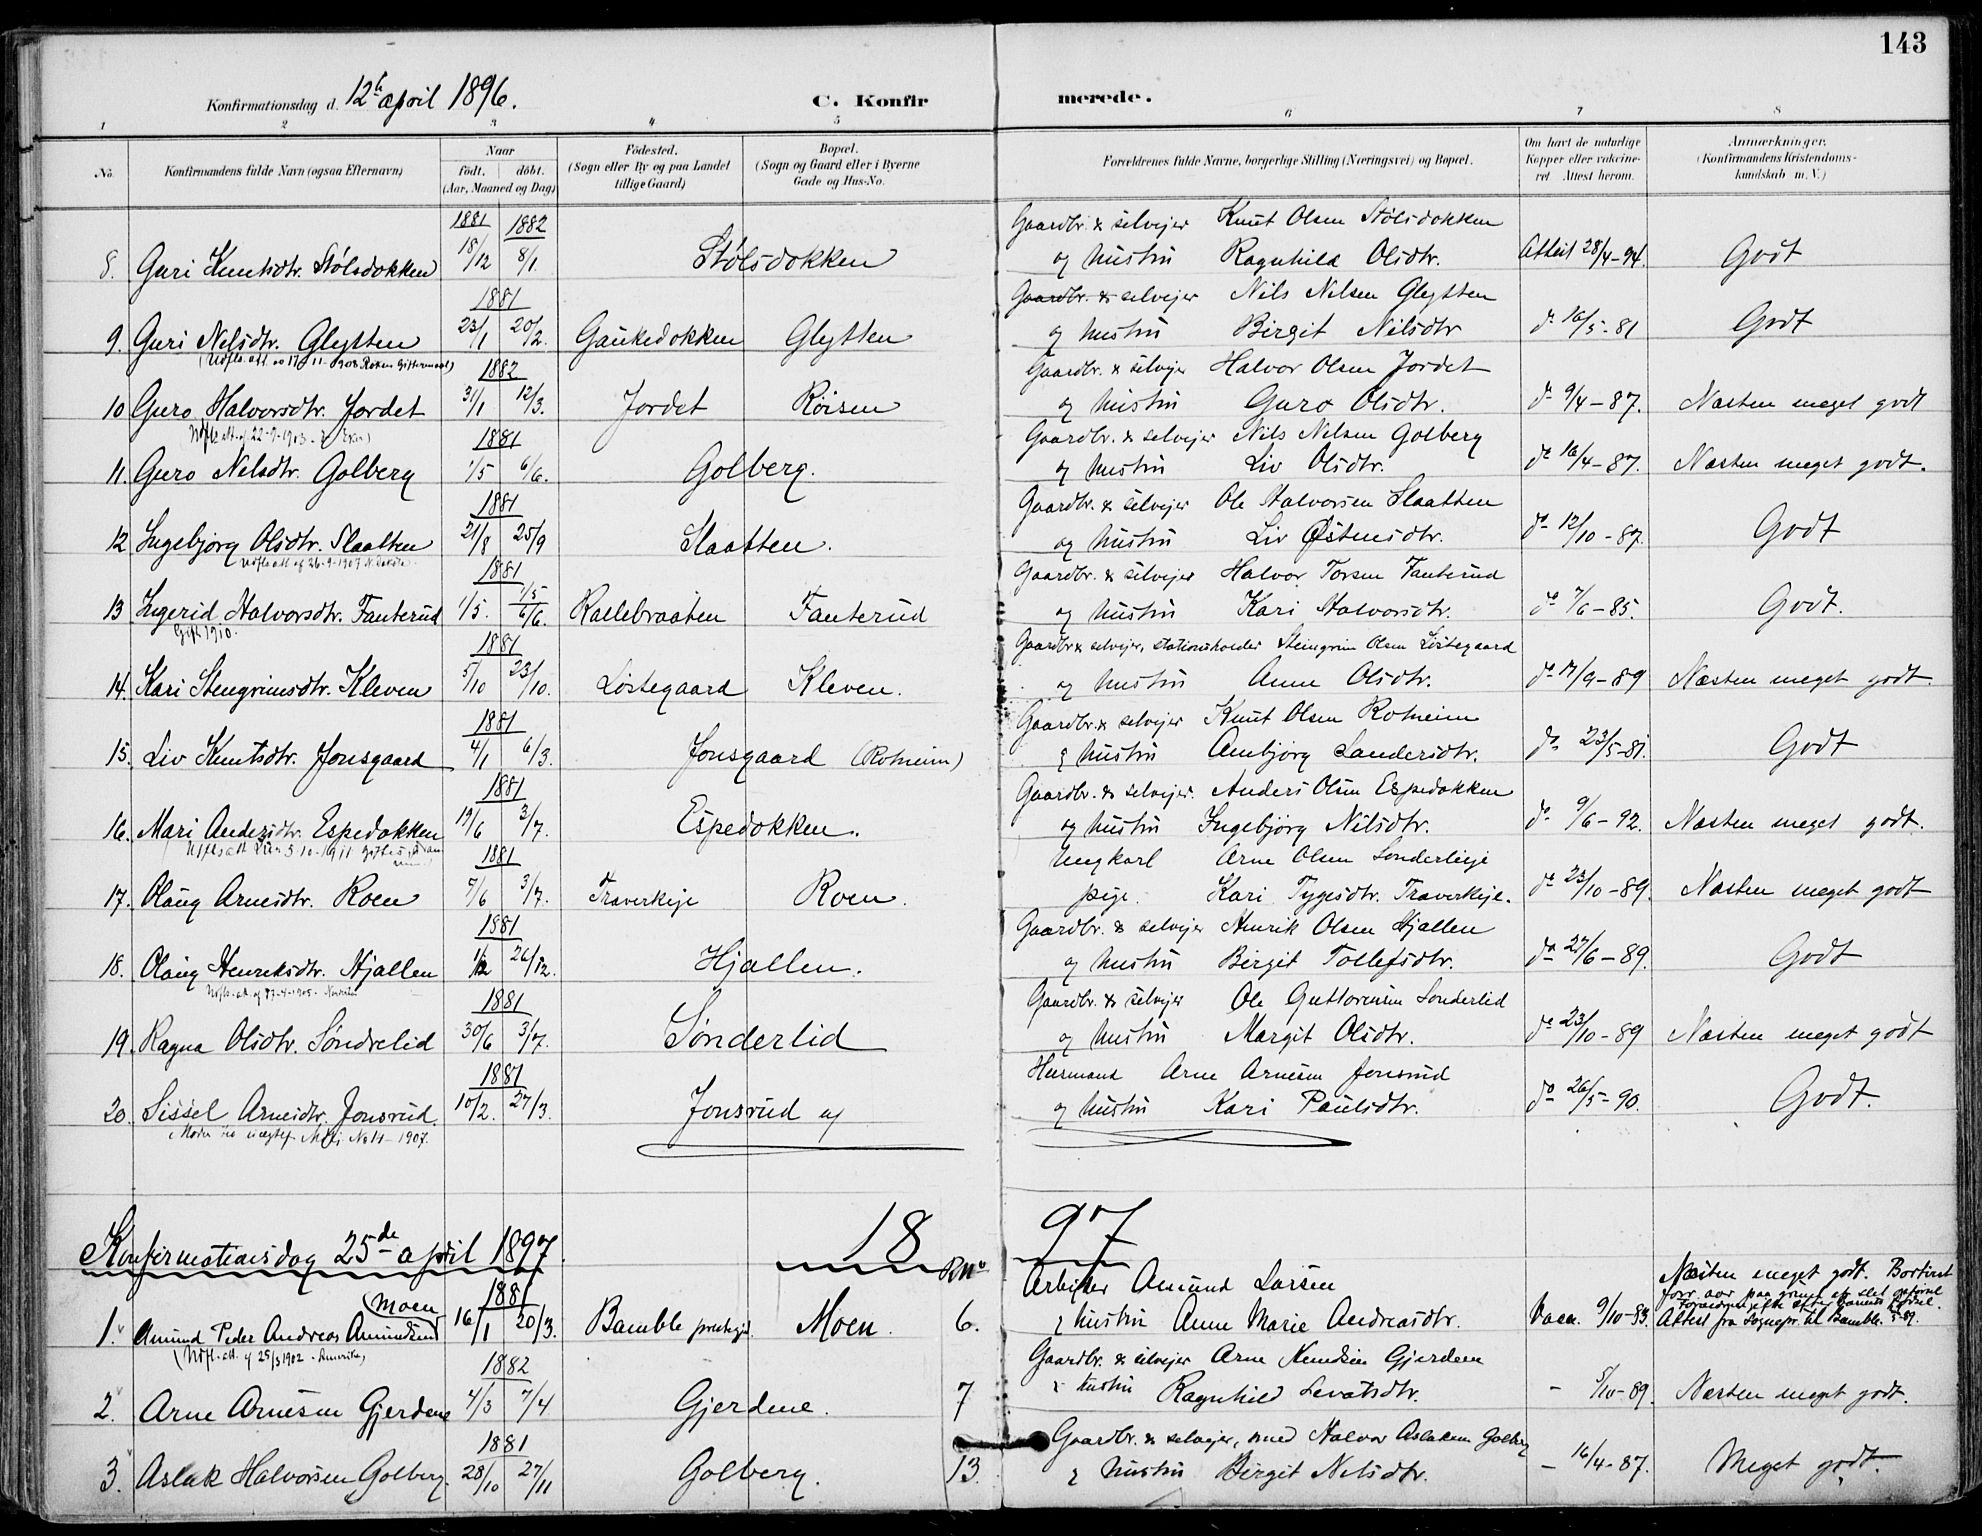 143
Konfirmationsdag d. 12te april 1896.
C. Konfirmerede.
1 2 3 4 5 6 7 8
No. Konfirmandens fulde Navn (ogsaa Efternavn) Naar født. døbt. (Aar, Maaned og Dag) Fødested. (Sogn eller By og paa Landet tillige Gaard) Bopæl. (Sogn og Gaard eller i Byerne Gade og Hus-No. Forældrenes fulde Navne, borgerlige Stilling (Næringsvei) og Bopæl. Om havt de naturlige Kopper eller vakcineret. Attest herom. Anmærkninger. (Konfirmandens Kristendomskundskab m. V.)
1881 1882 Gaardbr. & selvejer Knut Olsen Stølsdokken
8. Guri Knutsdtr. Stølsdokken 18/12 8/1. Stølsdokken og hustru Ragnhild Olsdtr. Attest 28/4-94. Godt
1881 Gaardbr. & selvejer Nils Nilsen Glytten
9. Guri Nelsdtr. Glytten 23/1 20/2. Gaukedokken Glytten og hustru Birgit Nilsdtr do 16/5-81 Godt
1882 Gaardbr. & selvejer Halvor Olsen Jordet
10 Guro Halvorsdtr. Jordet 31/1 12/3. Jordet Røisen og hustru Guro Olsdtr. do 9/4-87. Næsten meget godt
1881 Gaardbr. & selvejer Nils Nelsen Golberg
11. Guro Nelsdtr. Golberg 1/5 6/6. Golberg. og hustru Liv Olsdtr. do 16/4-87. Næsten meget godt.
1881 Gaardbr. & selvejer Ole Halvorsen Slaatten
12 Ingebjørg Olsdtr. Slaatten 21/8 25/9 Slaatten. og hustru Liv Østensdtr. do 12/10-87. Godt
1881 Gaardbr. & selvejer Halvor Torsen Fanterud
13 Ingerid Halvorsdtr. Fanterud 1/5. 1/5 6/6. Rallebraaten Fanterud og hustru Kari Halvorsdtr. do 7/6-85. Godt.
Gift 1910.
1881 Gaardbr & selvejer, stationsholder Steingrim Olsen Løstegaard
14. Kari Stengrimsdtr. Kleven 5/10 23/10. Løstegaard Kleven. og hustru Anne Olsdtr. do 17/9-89 Næsten meget godt.
1881 Gaardbr. & selvejer Knut Olsen Rotneim
15. Liv Knutsdtr. Jonsgaard 4/1 6/3. Jonsgaard (Rotneim) & hustru Ambjørg Sandersdtr. do 23/5-81. Godt
1881 Gaardbr. & selvejer. Anders Olsen Espedokken
16. Mari Andersdtr. Espedokken 19/6 3/7. Espedokken. og hustru Ingebjørg Nilsdtr. do 9/6-92. Næsten meget godt.
1881 Ungkarl Arne Olsen Sønderleje
17. Olaug Arnesdtr. Roen 7/6 3/7. Traverkeje Roen. pige. Kari Tygesdtr. Traverkeje. do 23/10-89. Næsten meget godt
1881 Gaardbr. & selvejer Henrik Olsen Hjallen
18. Olaug Henriksdtr. Hjallen 1/12 26/12. Hjallen. og hustru Birgit Tollefsdtr. do 27/6-89. Godt
1881 Gaardbr. & selvejer Ole Guttormsen Sønderlid
19. Ragna Olsdtr. Søndrelid 30/6 3/7. Sønderlid og hustru Margit Olsdtr. do 23/10-89 Næsten meget godt
1881 Husmand Arne Arnesen Jonsrud
20. Sissel Arnesdtr. Jonsrud. 10/2. 27/3. Jonsrud og hustru Kari Paulsdtr. do 26/5-90. Godt.
Konfirmationsdag 25de april 1897. 18 97
1881 Arbeider Amund Larsen
1. Amund Peder Andreas Amundsen (Moen 16/1 20/3. Bamble prestegjd. Moen. 6. & hustru Anne Marie Andreasdtr. Vacc. 9/10-83. Næsten meget godt. Bortvist
Attest fra Sognepr. til Bamble.
1882 Gaardbr. & selvejer Arne Knudsen Gjerdene
2. Arne Arnesen Gjerdene 4/3 7/4. Gjerdene. 7 & hustru Ragnhild Sevatsdtr. - 5/10-89. Næsten meget godt.
1881 Gaardbr. & selvejer, smed Halvor Aslaksen Golberg
3. Aslak Halvorsen Golberg. 28/10 27/11 Golberg. 13. & hustru Birgit Nelsdtr. - 16/4-87. Meget godt.